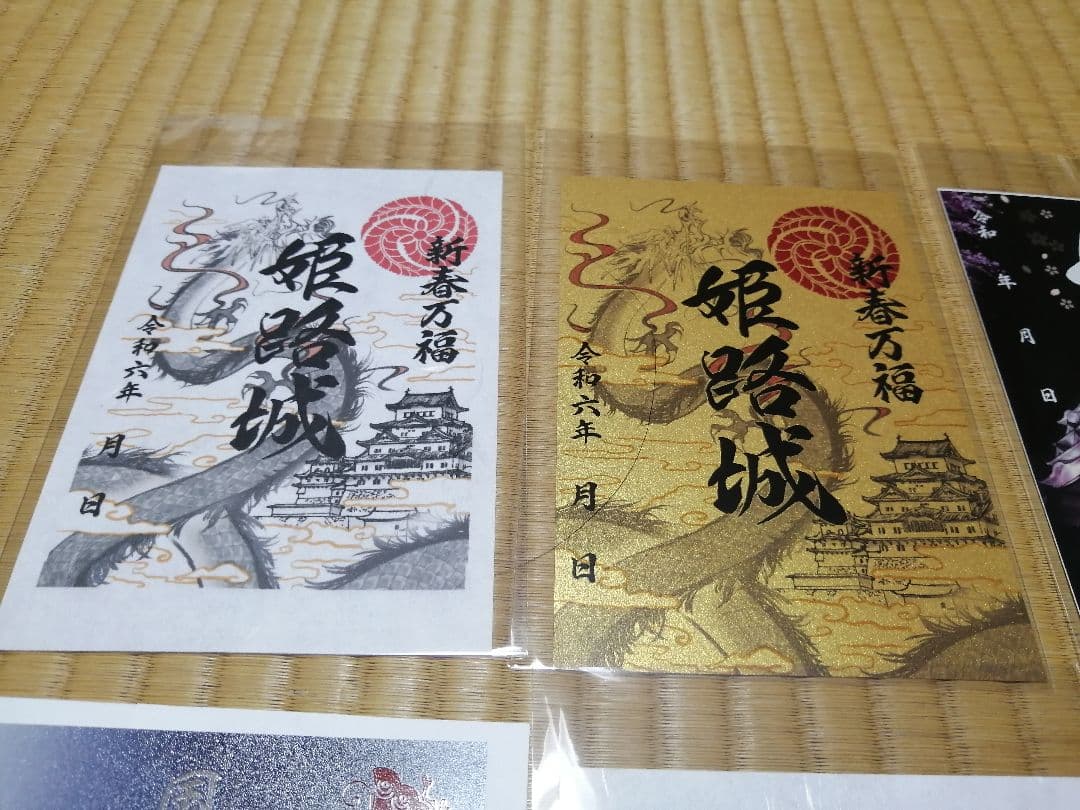 新春万福
姫路城
令和六年
月
日
新春万福
姫路城
令和六年
月
日
令和
年
月
日